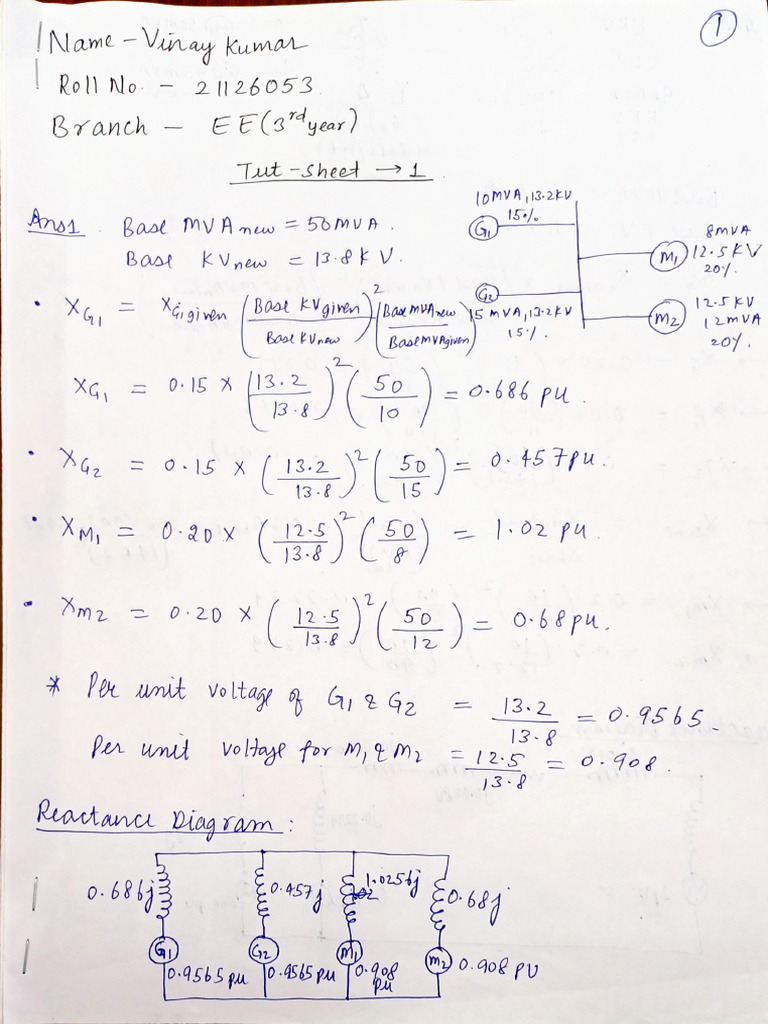 1
Name - Vinay Kumar
Roll No. - 21126053
Branch - EE (3rd year)
Tut-sheet → 1
Ans1. Base MVA new = 50 MVA.
Base KV new = 13.8 KV.
10 MVA, 13.2 KV
15%
G1
8 MVA
M1 12.5 KV
20%
G2
15 MVA, 13.2 KV
15%
12.5 KV
M2 12 MVA
20%
• XG1 = XG1 given (Base KV given / Base KV new)² (Base MVA new / Base MVA given)
XG1 = 0.15 × (13.2 / 13.8)² (50 / 10) = 0.686 pu.
• XG2 = 0.15 × (13.2 / 13.8)² (50 / 15) = 0.457 pu.
• XM1 = 0.20 × (12.5 / 13.8)² (50 / 8) = 1.02 pu.
• XM2 = 0.20 × (12.5 / 13.8)² (50 / 12) = 0.68 pu.
* Per unit voltage of G1 & G2 = 13.2 / 13.8 = 0.9565.
Per unit voltage for M1 & M2 = 12.5 / 13.8 = 0.908.
Reactance Diagram :
0.686j 0.457j 1.0256j 0.68j
G1 G2 M1 M2
0.9565 pu 0.9565 pu 0.908 pu 0.908 PU